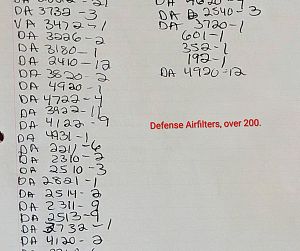 DA 3732-3
VA 3472-1
DA 3226-2
DA 3180-1
DA 2410-12
DA 3820-2
DA 4920-1
DA 4722-4
DA 3922-11
DA 4122-9
DA 4931-1
DA 2211-6
DA 2310-2
DA 2510-3
DA 2821-1
DA 2514-2
DA 2311-9
DA 2513-9
DA 3732-1
DA 4120-2
DA 2540-3
DA 3720-1
601-1
352-1
192-1
DA 4920-12
Defense Airfilters, over 200.